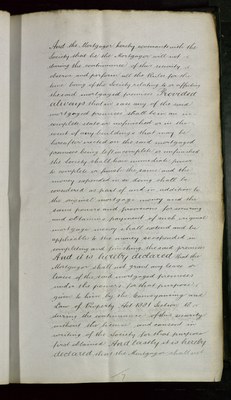 And the Mortgagor hereby covenants with the
Society that he the Mortgagor will at all times
during the continuance of this security
observe and perform all the Rules for the
time being of the Society relating to or affecting
the said mortgaged premises Provided
always that in case any of the said
mortgaged premises shall be in an in-
complete state or unfinished or in the
event of any buildings that may be
hereafter erected on the said mortgaged
premises being left incomplete or unfinished
the Society shall have immediate power
to complete or finish the same and the
money expended in so doing shall be
considered as part of and in addition to
the original mortgage money and the
same powers and provisions for securing
and obtaining payment of such original
mortgage money shall extend and be
applicable to the money so expended in
completing and finishing the said premises
And it is hereby declared that the
Mortgagor shall not grant any lease or
leases of the said mortgaged premises
under the powers for that purpose
given to him by the Conveyancing and
Law of Property Act 1881 Section 18
during the continuance of this security
without the licence and consent in
writing of the Society for that purpose
first obtained And Lastly it is hereby
declared that the Mortgagor shall not